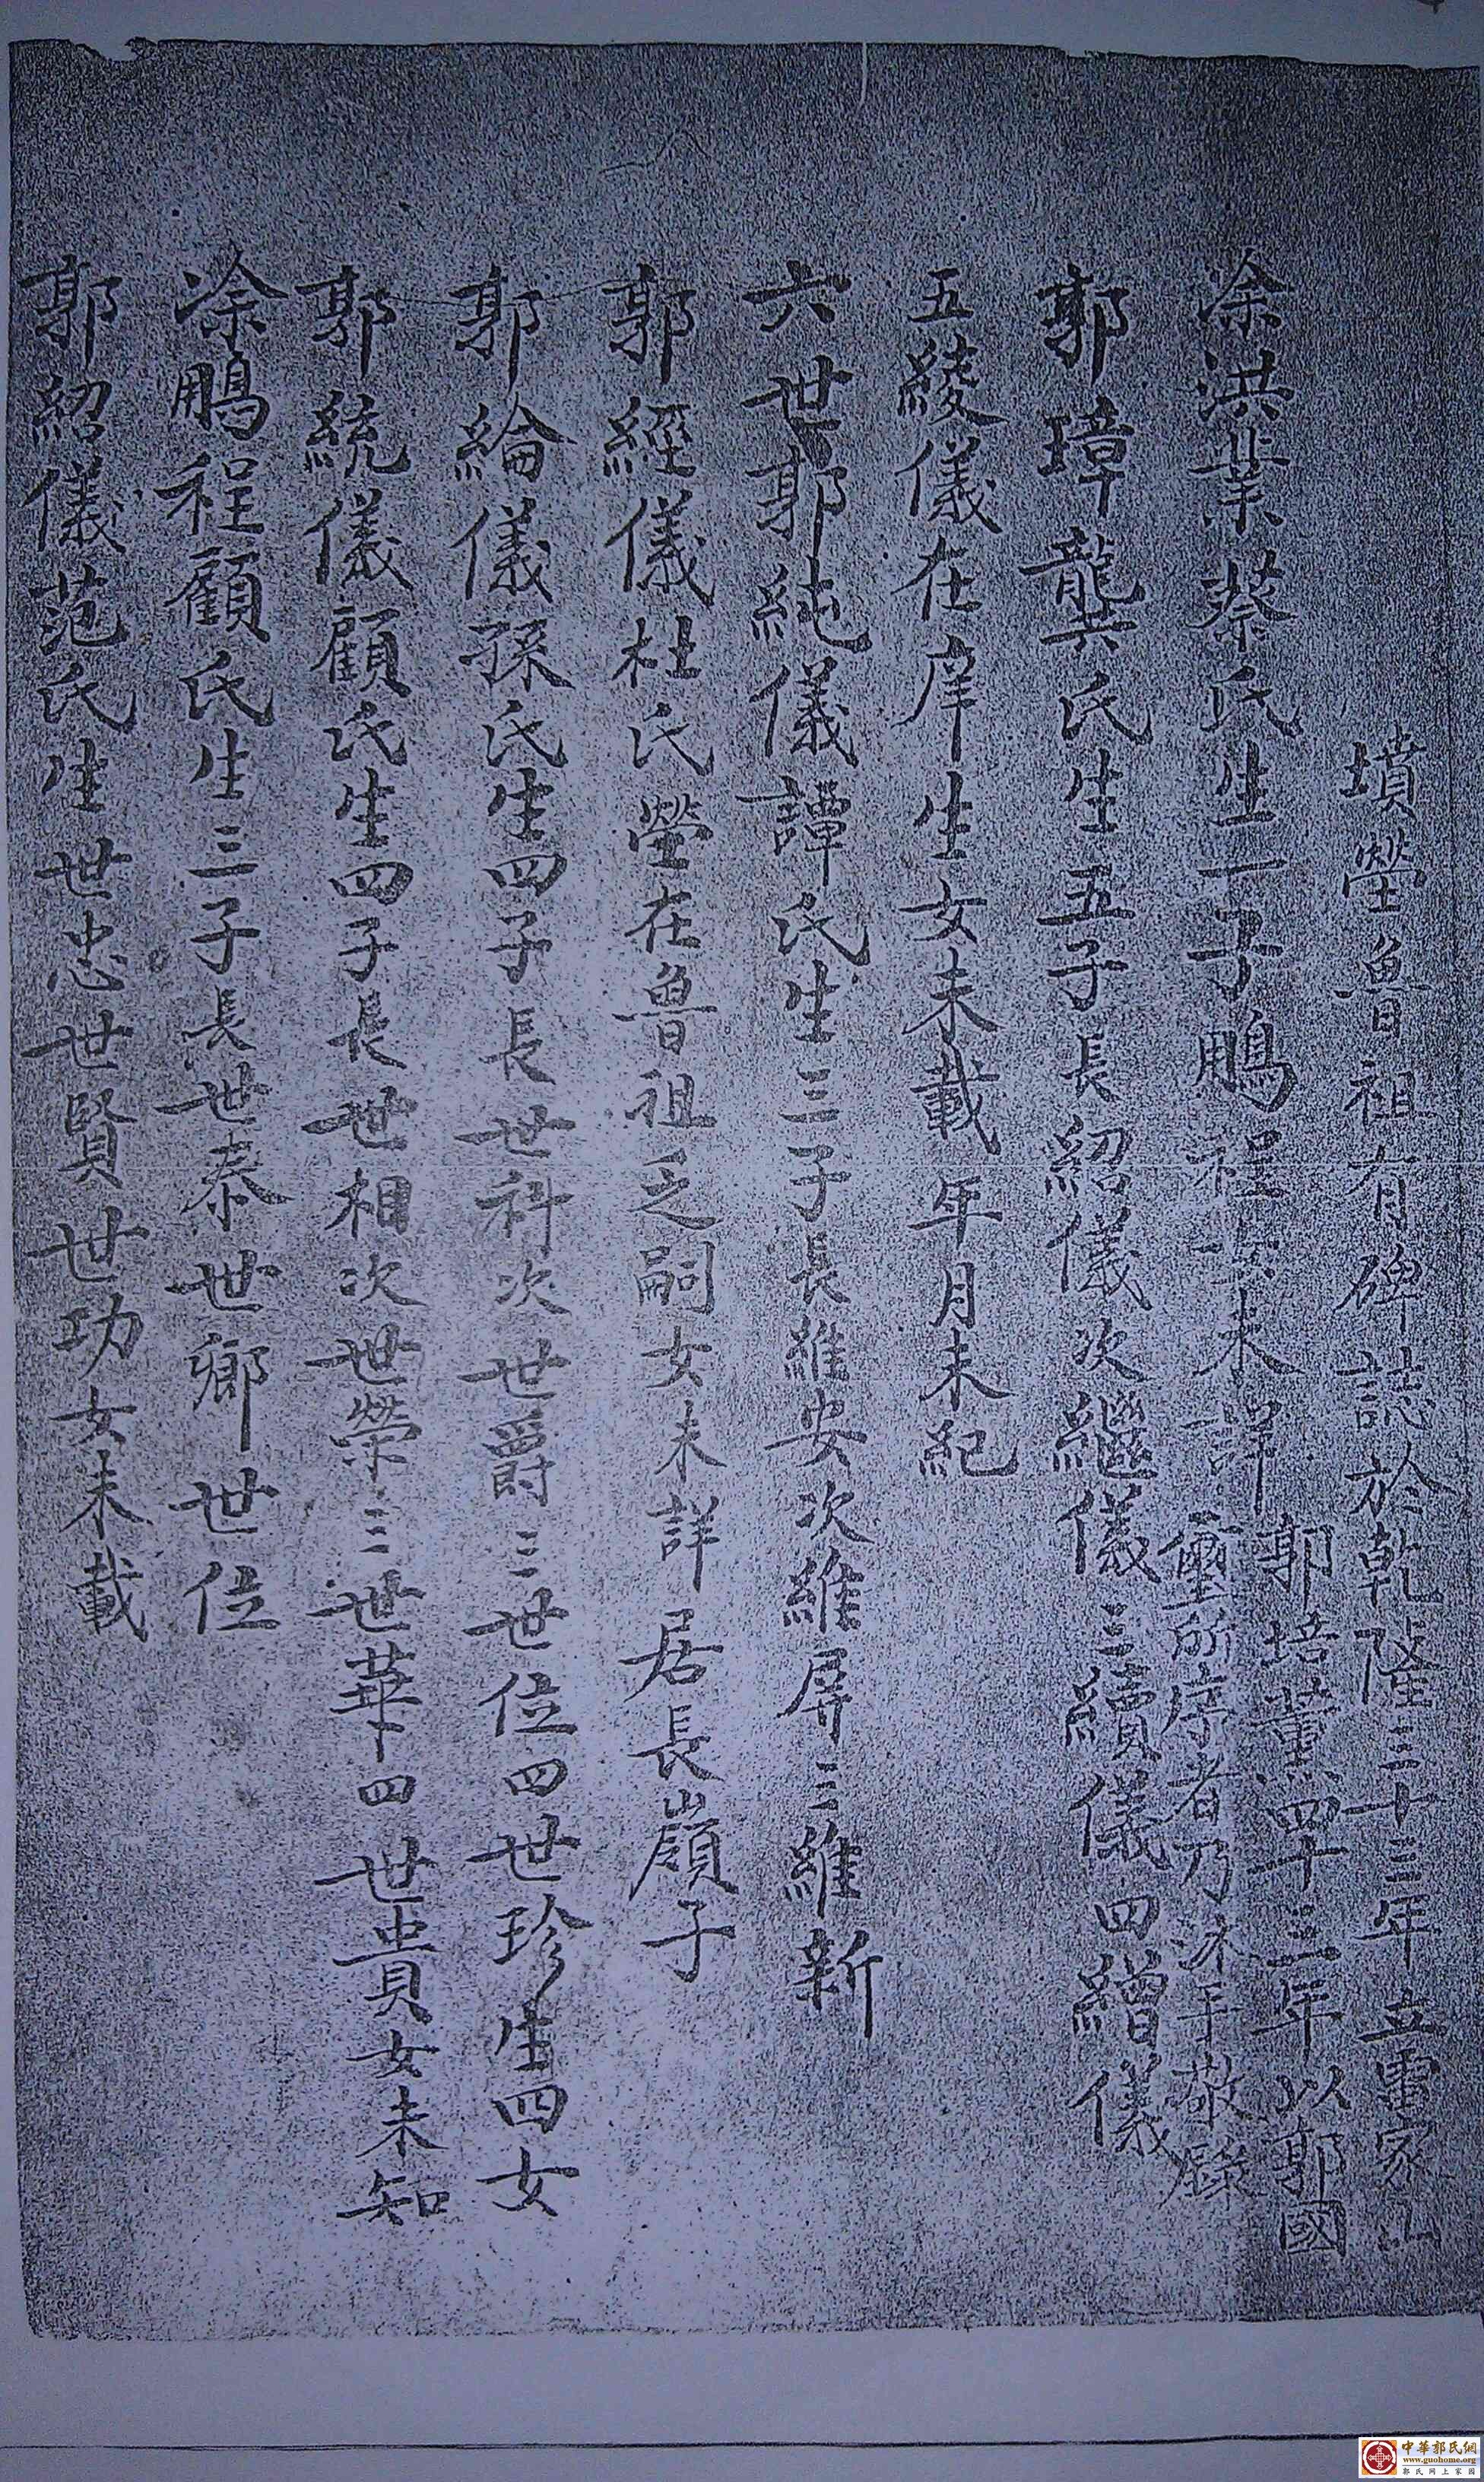 墳塋魯祖有碑誌於乾隆三十三年立雷家山
涂洪業蔡氏生一子鵬程女未詳
郭培董四十三年以郭國
璽所序者乃沐手敬錄
郭璋龔氏生五子長紹儀次繼儀三續儀四繒儀
五綾儀在庠生女未載年月未紀
六世郭純儀譚氏生三子長維安次維屏三維新
郭經儀杜氏塋在魯祖乏嗣女未詳居長嶺子
郭綸儀孫氏生四子長世科次世爵三世位四世珍生四女
郭統儀顧氏生四子長世相次世榮三世華四世貴女未知
涂鵬程顧氏生三子長世泰世鄉世位
郭紹儀范氏生世忠世賢世功女未載
中華郭氏網
www.guohome.org
郭氏网上家园